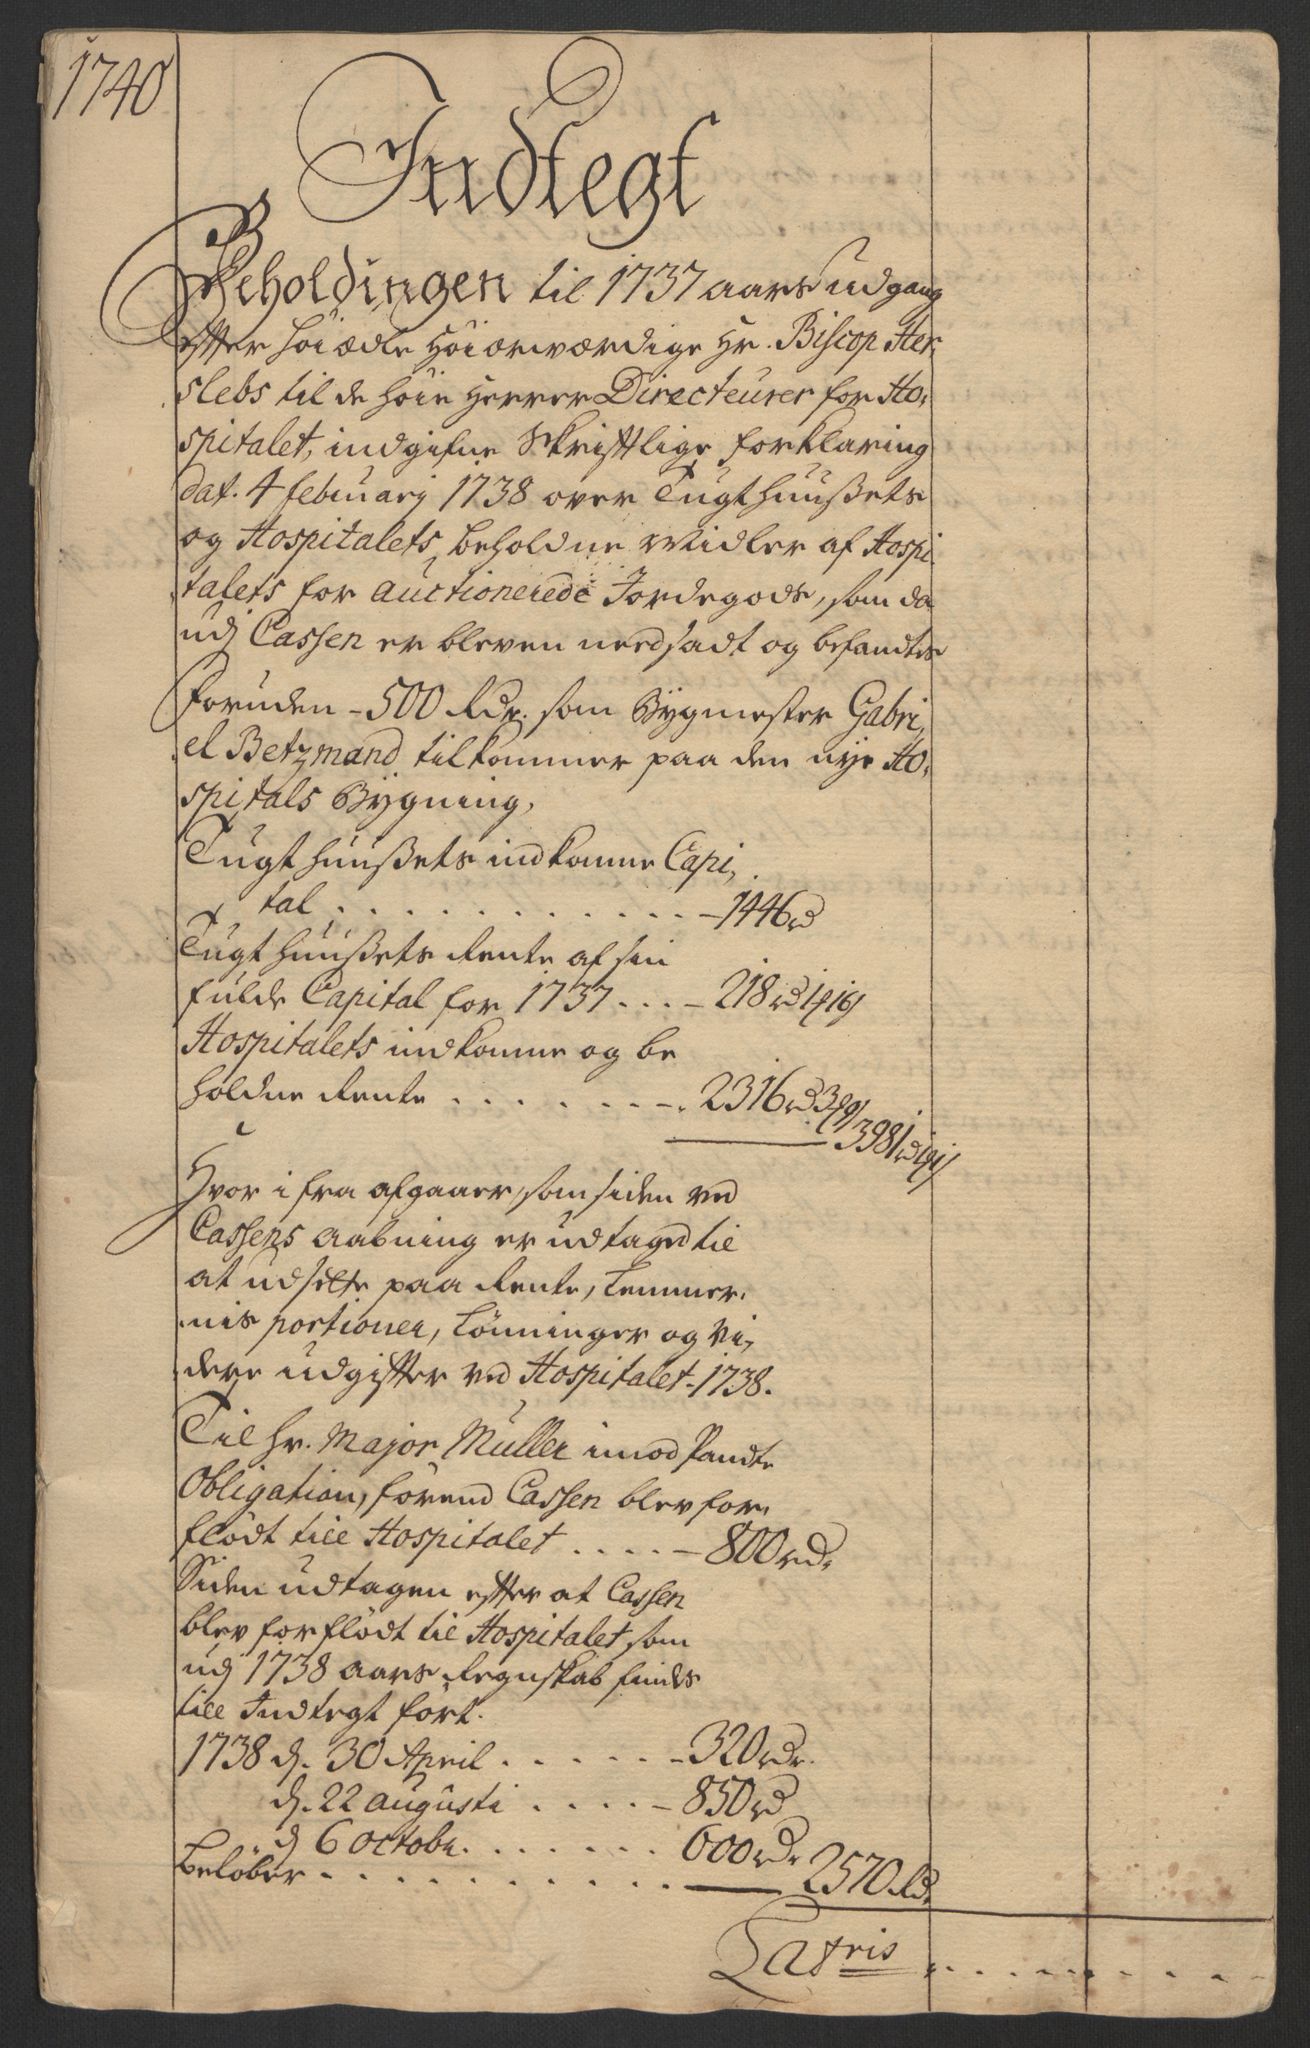 1740
Indtegt
Beholdingen til 1737 aars udgang
efter høiædle høiærværdige Hr. Biscop Her,
slebs til de høie Herrer Directeurer for Ho,
spitalet, indgifne Skriftlige forklaring
dat. 4 februarj 1738 over Tugthuußets
og Hospitalets beholdne Midler af Hospi
talets for auctionerede Jordegods, som da
udj Cassen er bleven needsadt og befandtes
foruden - 500 Rdr. som Bygmester Gabri,
el Betzmand tilkommer paa den nye Ho,
spitals Bygning,
Tugthuußets indkomne Capi,
tal . . . . . . . . . . . . . - 1446 rd
Tugthuußets Rente af sin
fulde Capital for 1737 . . . . - 218 rd 1 ℔ 16 ß
Hospitalets indkomne og be
holdne Rente . . . . . . . - . 2316 rd 3 ℔ 9 ß
3981 rd 1 ℔ 1 ß
Hvor i fra afgaaer, som siden ved
Cassens aabning er udtaged til
at udsette paa Rente, Lemmer,
nis portioner, Lønninger og vi,
dere udgifter ved Hospitalet - 1738.
Til Hr. Major Muller imod Pandte
Obligation, førend Cassen blev for,
flødt till Hospitalet . . . . . - 800 rd.
Siden udtagen efter at Cassen
blev forflødt til Hospitalet som
udj 1738 aars Regnskab findes
till Indtegt ført.
1738 d. 30 April . . . . . . - 320 rdr.
d. 22 augusti . . . . . - 850 rd
d 6 octobr. . . . . . . . 600 rdr
Beløber . . . . . . . . . . . 2570 Rd.
Latris . . . . . . . .